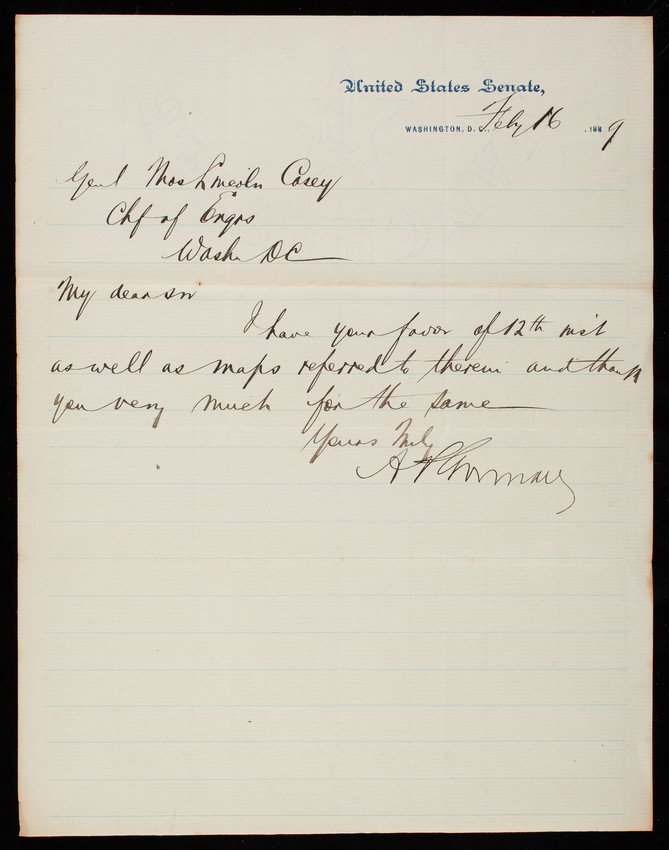 United States Senate,
WASHINGTON, D. C., Feby 16, 1889
Genl Thos Lincoln Casey
Chf of Engrs
Wash DC
My dear sir
I have your favor of 12th inst
as well as maps referred to therein and thank
you very much for the same
Yours Truly
A P Gorman